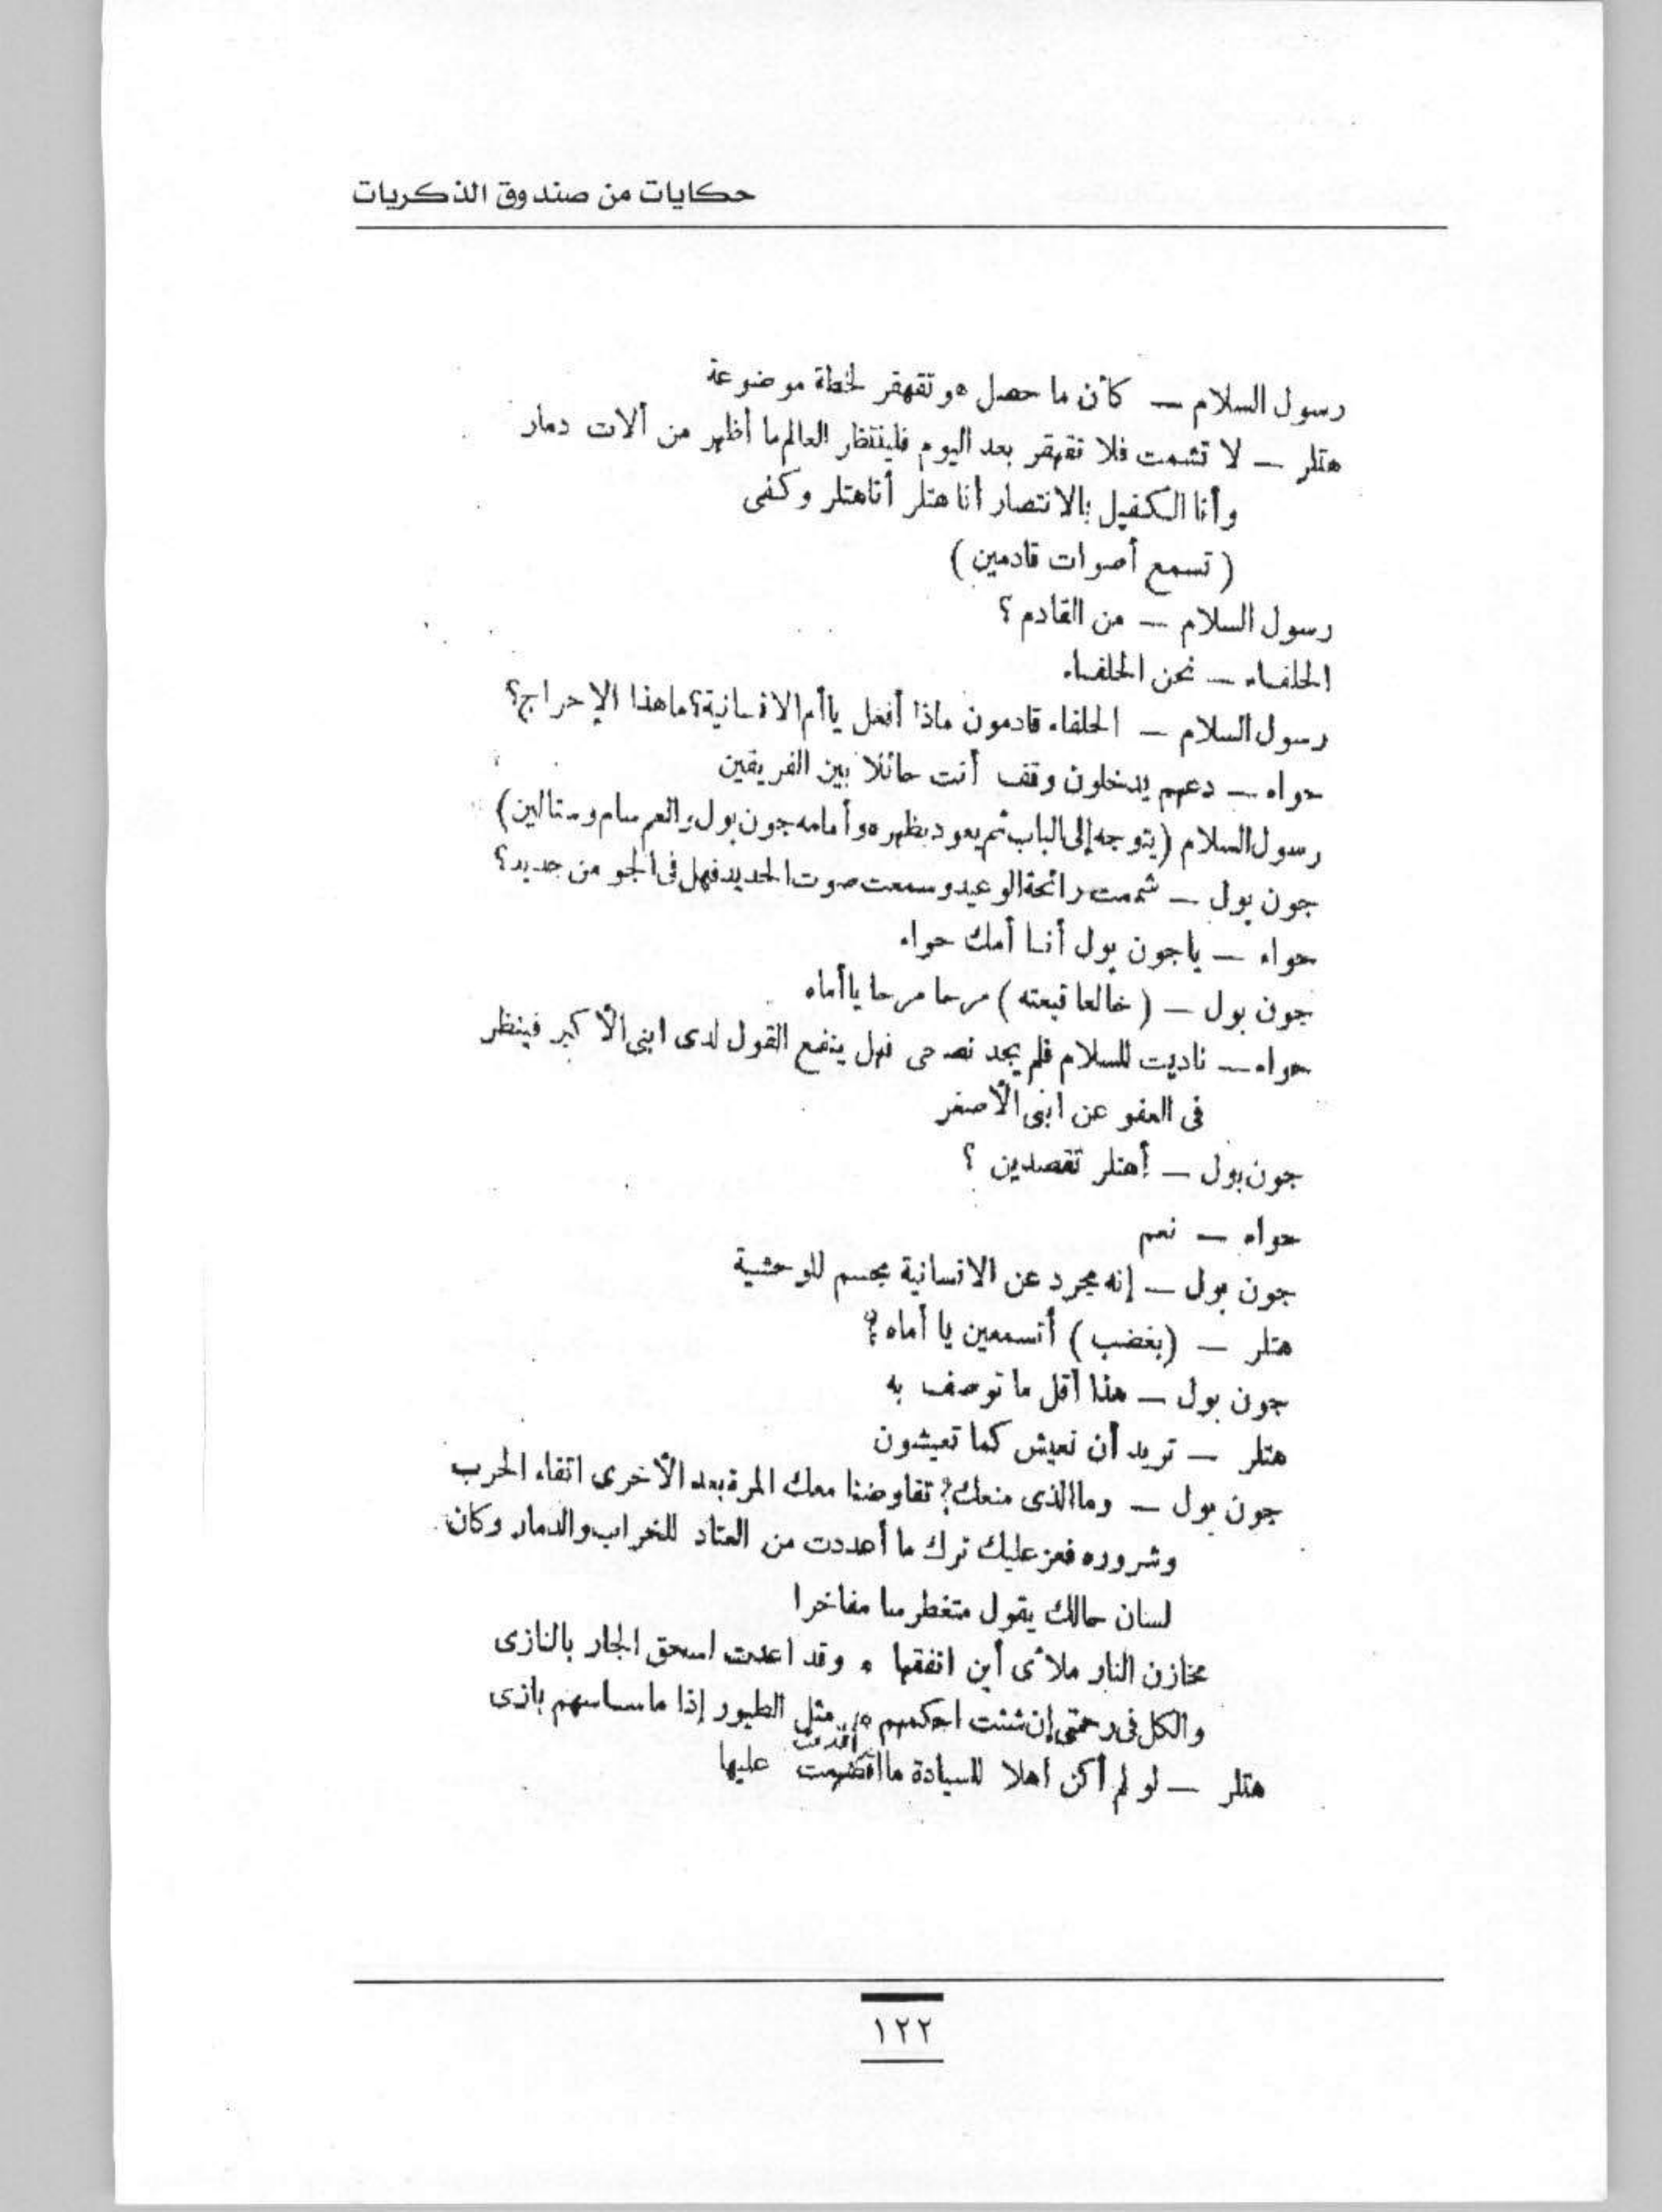 حكايات من صندوق الذكريات
رسول السلام — كأن ما حصل هو تقهقر لخطة موضوعة
هتلر — لا تشمت فلا تقهقر بعد اليوم فلينتظر العالم ما أظهر من ألات دمار
وأنا الكفيل بالانتصار أنا هتلر أنا هتلر وكفى
( تسمع أصوات قادمين )
رسول السلام — من القادم ؟
الحلفاء — نحن الحلفاء
رسول السلام — الحلفاء قادمون ماذا أفعل ياأم الانسانية؟ ماهذا الإحراج؟
حواء — دعهم يدخلون وقف أنت حائلا بين الفريقين
رسول السلام (يتوجه إلى الباب ثم يعود بظهره وأمامه جون بول والعم سام وستالين)
جون بول — شممت رائحة الوعيد وسمعت صوت الحديد فهل فى الجو من جديد؟
حواء — ياجون بول أنا أمك حواء
جون بول — ( خالعا قبعته ) مرحا مرحا ياأماه
حواء — ناديت للسلام فلم يجد نصحى فهل ينفع القول لدى ابنى الأكبر فينظر
فى العفو عن ابنى الأصغر
جون بول — أهتلر تقصدين ؟
حواء — نعم
جون بول — إنه مجرد عن الانسانية مجسم للوحشية
هتلر — (بغضب) أتسمعين يا أماه؟
جون بول — هذا أقل ما توصف به
هتلر — تريد أن نعيش كما تعيشون
جون بول — وماالذى منعك؟ تفاوضنا معك المرة بعد الأخرى اتقاء الحرب
وشروره فعز عليك ترك ما أعددت من العتاد للخراب والدمار وكان
لسان حالك يقول متغطرسا مفاخرا
مخازن النار ملأى أين انفقها ، وقد اعدت اسحق الجار بالنازى
والكل فى رحمتى إن شئت احكمهم ، مثل الطيور إذا ماساسهم بازى
هتلر — لو لم أكن أهلا للسيادة ما أقدمت عليها
١٢٢